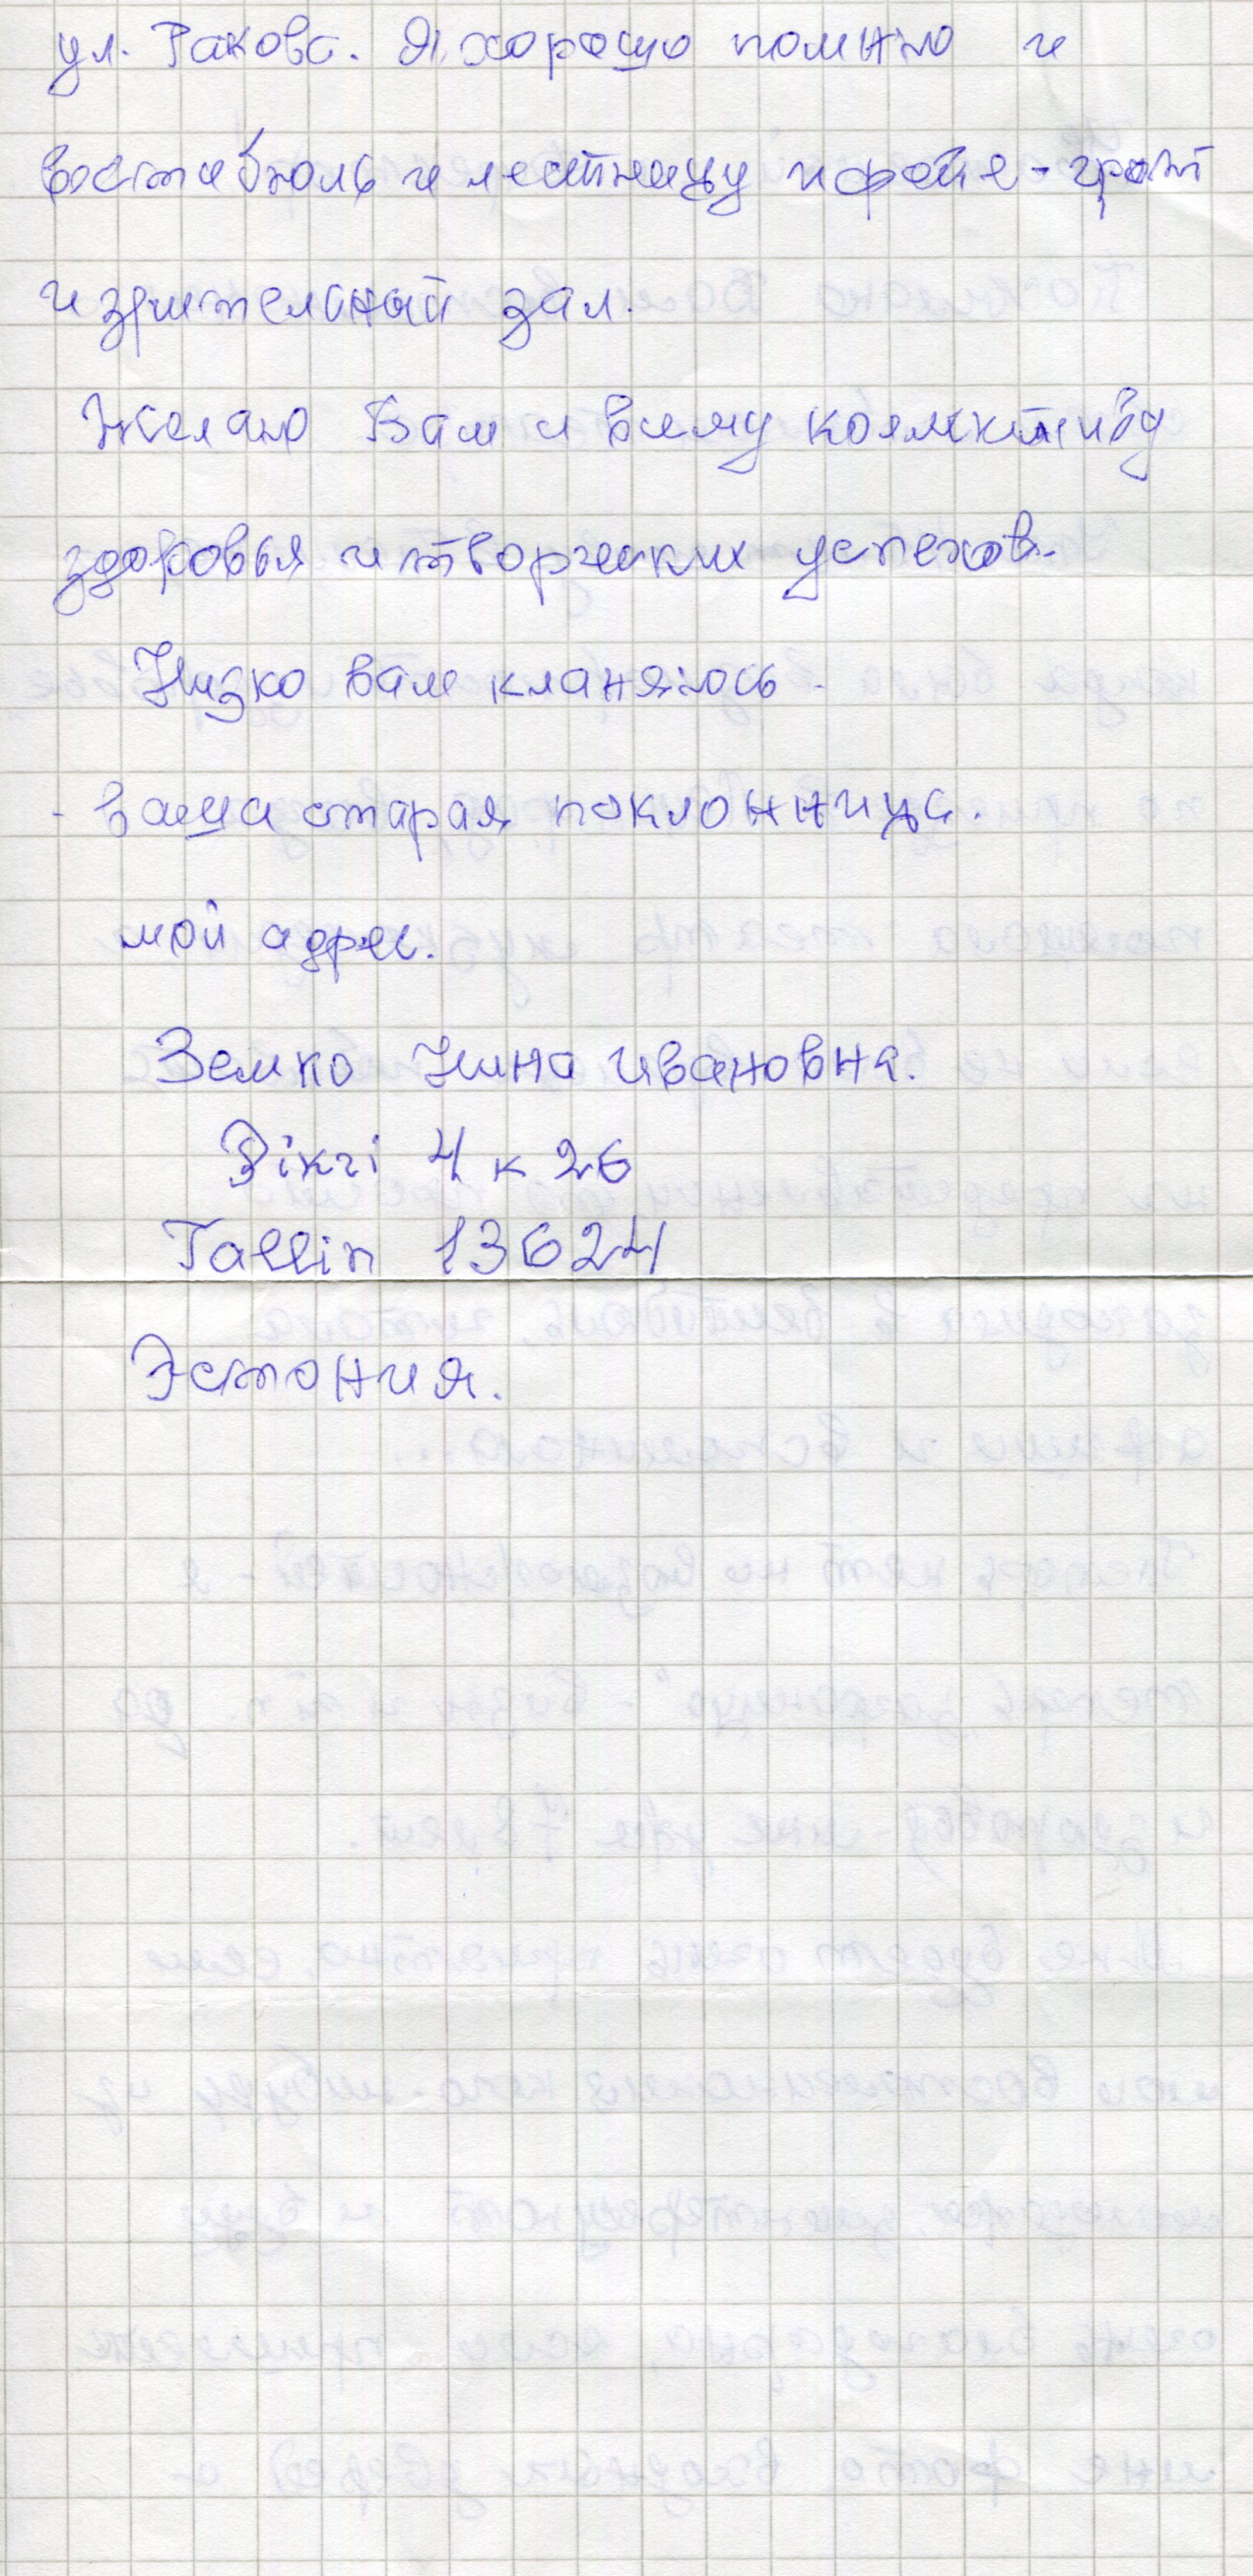 ул. Ракова. Я хорошо помню и
вестибюль и лестницу и фойе - грот
и зрительный зал.
Желаю Вам и всему коллективу
здоровья и творческих успехов.
Низко вам кланяюсь -
- ваша старая поклонница.
мой адрес.
Земко Нина Ивановна.
4 к 26
Tallin 13624
Эстония.